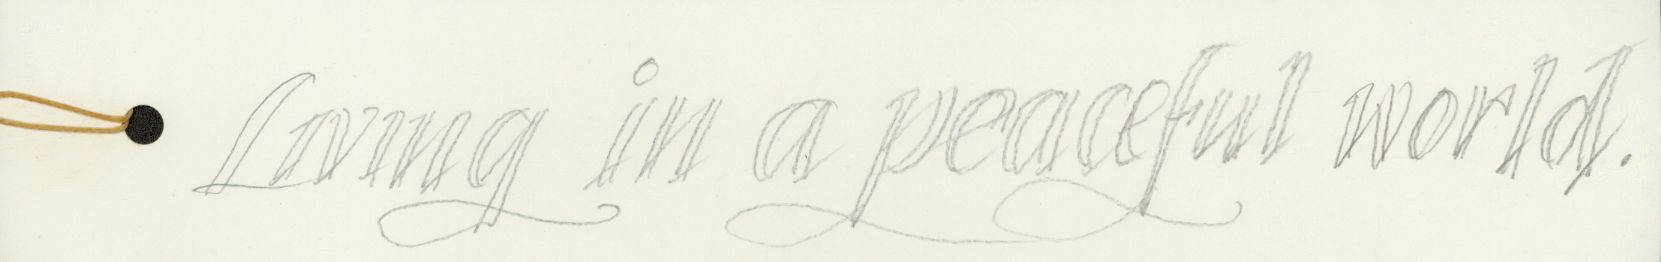 Living in a peaceful world.